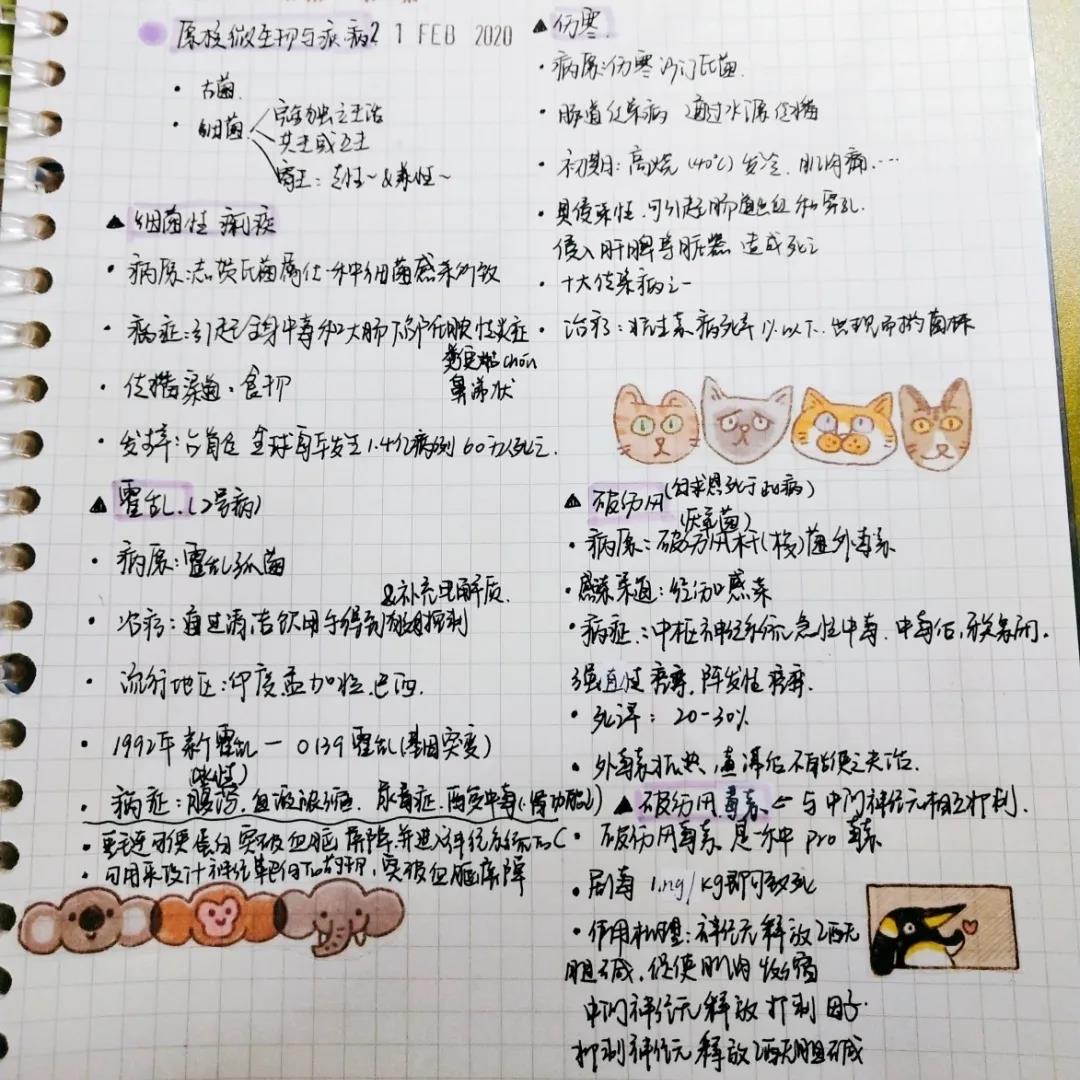 原核微生物与疾病2 1 FEB 2020
· 古菌
· 细菌 完全独立生活
共生或互生
寄生：专性~&兼性~
▲ 细菌性痢疾
· 病原：志贺氏菌属任一种细菌感染所致
· 病症：引起全身中毒和大肠下部化脓性炎症
粪更粘chou
鼻涕状
· 传播渠道：食物
· 发病率：占首位 全球每年发生1.4亿病例 60万人死亡.
▲ 霍乱.(2号病)
· 病原：霍乱弧菌
&补充电解质.
· 治疗：通过清洁饮用水得到有效控制
· 流行地区：印度孟加拉.巴西.
· 1992年 新霍乱 — O139霍乱(基因突变)
(水性)
· 病症：腹泻.血液浓缩.尿毒症.酸中毒(肾功能↓)
· 可使蛋白突破血脑屏障,并进入神经系统
· 可用来设计神经靶向药物,突破血脑屏障
▲ 伤寒.
· 病原:伤寒沙门氏菌.
· 肠道传染病 通过水源传播
· 初期：高烧(40℃)发冷.肌肉痛…
· 具侵染性.可引起肠道出血和穿孔.
侵入肝脾等脏器 造成死亡
· 十大传染病之一
· 治疗：抗生素 病死率1%以下.出现耐药菌株
▲ 破伤风(白求恩死于此病)
(厌氧菌)
· 病原：破伤风杆(梭)菌外毒素
· 感染渠道：经伤口感染
· 病症：中枢神经系统急性中毒.中毒后,牙关紧闭.
强直性痉挛,阵发性痉挛.
· 死亡率：20-30%
· 外毒素不抗热,煮沸后不能使之失活.
▲ 破伤风毒素 ← 与中间神经元相互抑制.
· 破伤风毒素是一种pro毒素
· 剧毒 1ng/kg即可致死
· 作用机理：神经元释放乙酰
胆碱,促使肌肉收缩
中间神经元释放抑制因子
抑制神经元释放乙酰胆碱